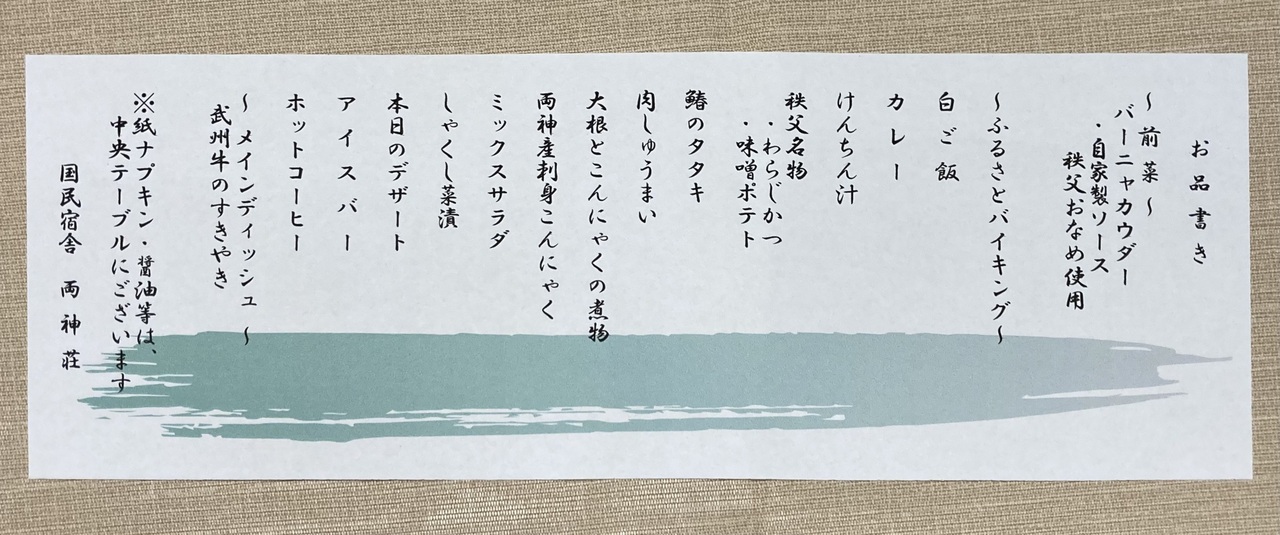 お品書き
～前菜～
バーニャカウダー
・自家製ソース
秩父おなめ使用
～ふるさとバイキング～
白ご飯
カレー
けんちん汁
秩父名物
・わらじかつ
・味噌ポテト
鰆のタタキ
肉しゅうまい
大根とこんにゃくの煮物
両神産刺身こんにゃく
ミックスサラダ
しゃくし菜漬
本日のデザート
アイスバー
ホットコーヒー
～メインディッシュ～
武州牛のすきやき
※紙ナプキン・醤油等は、
中央テーブルにございます
国民宿舎 両神荘